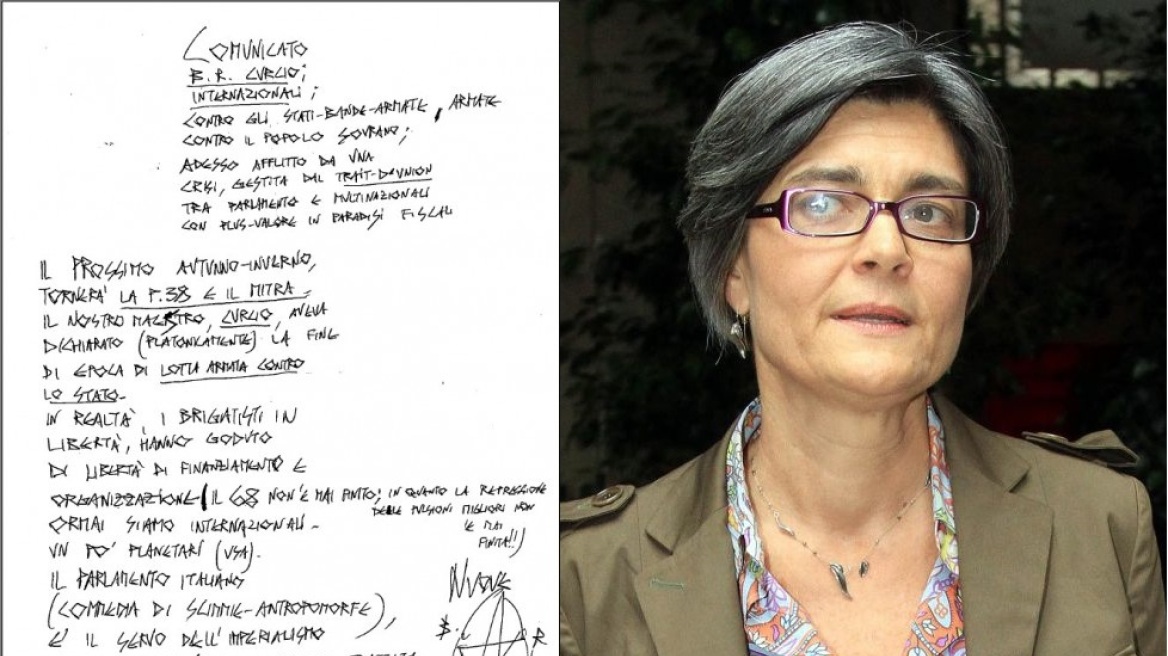 COMUNICATO
B.R. CURCIO;
INTERNAZIONALI;
CONTRO GLI STATI-BANDE-ARMATE, ARMATE
CONTRO IL POPOLO SOVRANO;
ADESSO AFFLITTO DA UNA
CRISI, GESTITA DAL TRAIT-D'UNION
TRA PARLAMENTO E MULTINAZIONALI
CON PLUS-VALORE IN PARADISI FISCALI
IL PROSSIMO AUTUNNO-INVERNO,
TORNERÀ LA P.38 E IL MITRA-
IL NOSTRO MAESTRO, CURCIO, AVEVA
DICHIARATO (PLATONICAMENTE) LA FINE
DI EPOCA DI LOTTA ARMATA CONTRO
LO STATO-
IN REALTÀ, I BRIGATISTI IN
LIBERTÀ, HANNO GODUTO
DI LIBERTÀ DI FINANZIAMENTO E
ORGANIZZAZIONE (IL 68 NON È MAI FINITO; IN QUANTO LA REPRESSIONE
DELLE PULSIONI MIGLIORI NON
È MAI
FINITA!!)
ORMAI SIAMO INTERNAZIONALI-
UN PO' PLANETARI (USA).
IL PARLAMENTO ITALIANO
(COMMEDIA DI SCIMMIE-ANTROPOMORFE),
È IL SERVO DELL'IMPERIALISMO
NUOVE
B. R